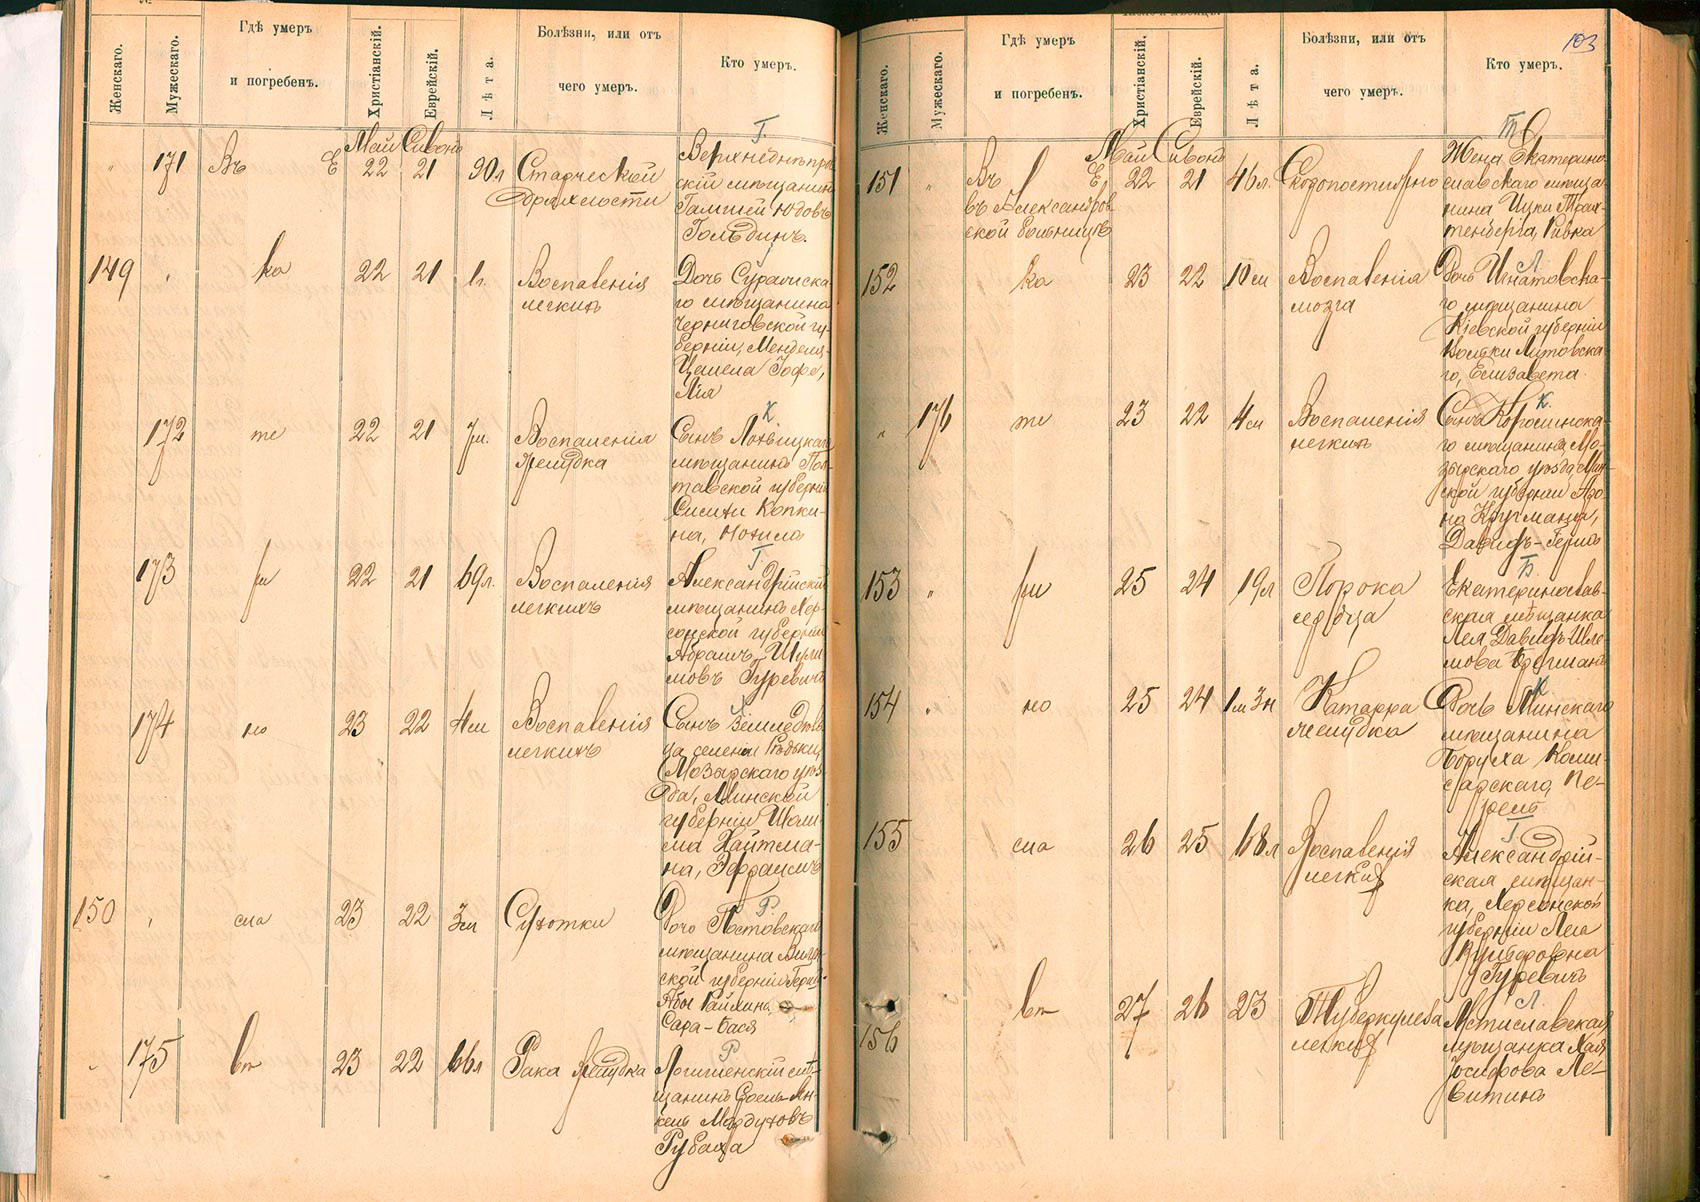 Женскаго.
Мужескаго.
Гдѣ умеръ
и погребенъ.
Христіанскій.
Еврейскій.
Лѣта.
Болѣзни, или отъ
чего умеръ.
Кто умеръ.
Май Сивонъ
Г
" 171 Въ Е 22 21 90л Старческой
дряхлости
Верхнеднѣпров
скій мѣщанинъ
Юдовъ
Гольдинъ.
149 " ка 22 21 1г. Воспаленія
легкихъ
Дочь Суражска
го мѣщанина
Черниговской гу-
берніи, Менделя-
Иофе,
К
172 те 22 21 7м. Воспаленія
желудка
Сынъ Лохвицкаго
мѣщанина Пол-
тавской губерніи
Копки-
на,
Г
173 ри 22 21 69л. Воспаленія
легкихъ
Александрійскій
мѣщанинъ Хер-
сонской губерніи
Абрамъ Шули
мовъ Гуревичъ
Х
174 но 23 22 4м Воспаленія
легкихъ
Сынъ Земледѣль
ца селенія
Мозырскаго уѣз-
да, Минской
губерніи Шоли-
ма Хайтма-
на, Эфраимъ
Р
150 " сла 23 22 3м Сухотки
Дочь
мѣщанина Вилен
ской губерніи Герша-
Абы Райхина
Сара-Бася
Р
" 175 вп 23 22 66л Рака желудка
скій мѣ-
щанинъ Ян-
кель Мордуховъ
Рубаха
103
Женскаго.
Мужескаго.
Гдѣ умеръ
и погребенъ.
Христіанскій.
Еврейскій.
Лѣта.
Болѣзни, или отъ
чего умеръ.
Кто умеръ.
Май Сивонъ
Т
151 " Въ Е 22 21 46л. Скоропостижно
въ Александров
ской больницѣ
Жена Екатерино
славскаго мѣща
нина Ицки Трах-
тенберга, Ривка
Л
152 ка 23 22 10м Воспаленія
мозга
Дочь Игнатовска-
го мѣщанина
Кіевской губерніи
Литовска-
го, Елизавета
К.
" 176 те 23 22 4м Воспаленія
легкихъ
Сынъ
го мѣщанина Мо-
зырскаго уѣзда Мин-
ской губерніи Аро-
на Кругмана,
Давидъ-Герша
Б
153 " ри 25 24 19л Порока
сердца
Екатеринослав-
ская мѣщанка
Лея Давидъ-Шло
мова Бергманъ
К
154 " но 25 24 1м 3н Катарра
желудка
Дочь Минскаго
мѣщанина
Боруха Коми-
сарскаго, Пе-
рель
Г
155 сла 26 25 68л Воспаленія
легкихъ
Александрій-
ская мѣщан-
ка, Херсонской
губерніи Лея
Вульфовна
Гуревичъ
Л.
156 вп 27 26 23 Туберкулеза
легкихъ
Мстиславская
мѣщанка Хая
Іосифова Ле-
витинъ